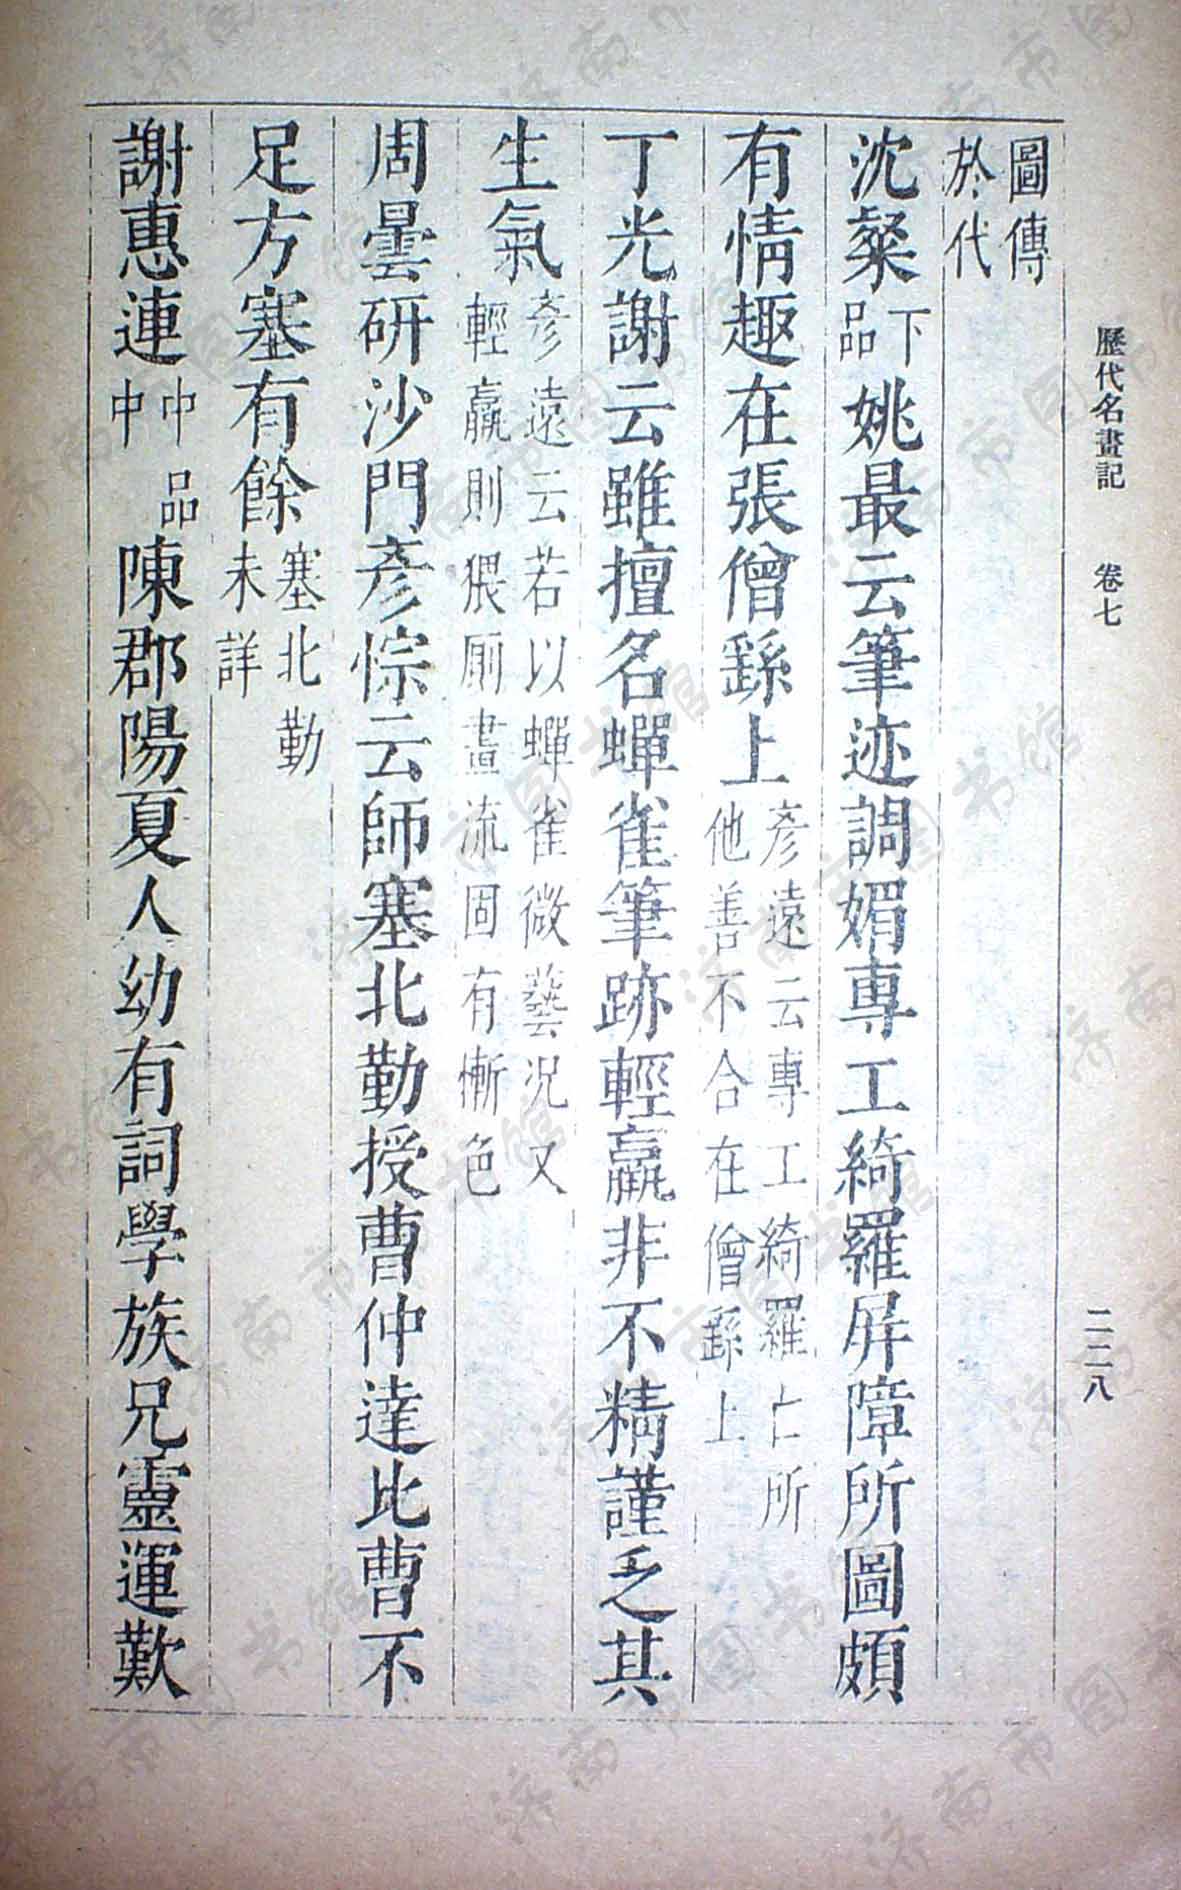 歷代名畫記 卷七 二二八
圖傳
於代
沈粲下品姚最云筆迹調媚專工綺羅屏障所圖頗
有情趣在張僧繇上彥遠云專工綺羅亡所他善不合在僧繇上
丁光謝云雖擅名蟬雀筆跡輕羸非不精謹乏其
生氣彥遠云若以蟬雀微藝況又輕羸則猥廁畫流固有慚色
周曇研沙門彥悰云師塞北勤授曹仲達比曹不
足方塞有餘塞北勤未詳
謝惠連中品中陳郡陽夏人幼有詞學族兄靈運歎